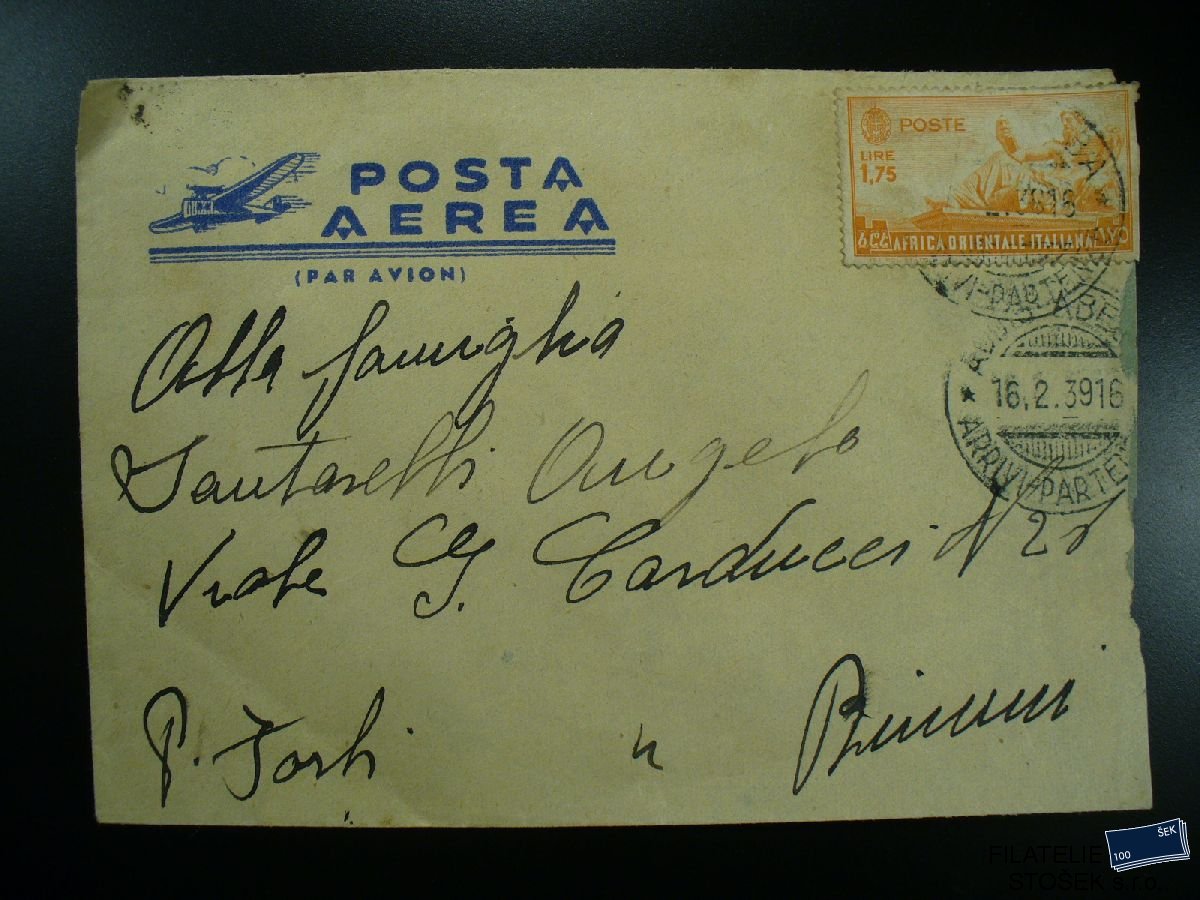 POSTA
AEREA
(PAR AVION)
POSTE
LIRE
1,75
AFRICA ORIENTALE ITALIANA
16.2.3916
ARRIVI-PARTEN
Alla famiglia
Santarelli Angelo
Viale G. Carducci N
P. Forlì
Rimini
FILATELIE
STOŠEK s.r.o.
100
ŠEK